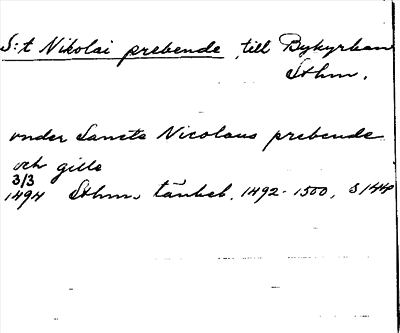 S:t Nikolai prebende till Bykyrkan
Sthm.
under Sancte Nicolaus prebende
och gille
3/3
1494 Sthm. tänkeb. 1492-1500, s 144